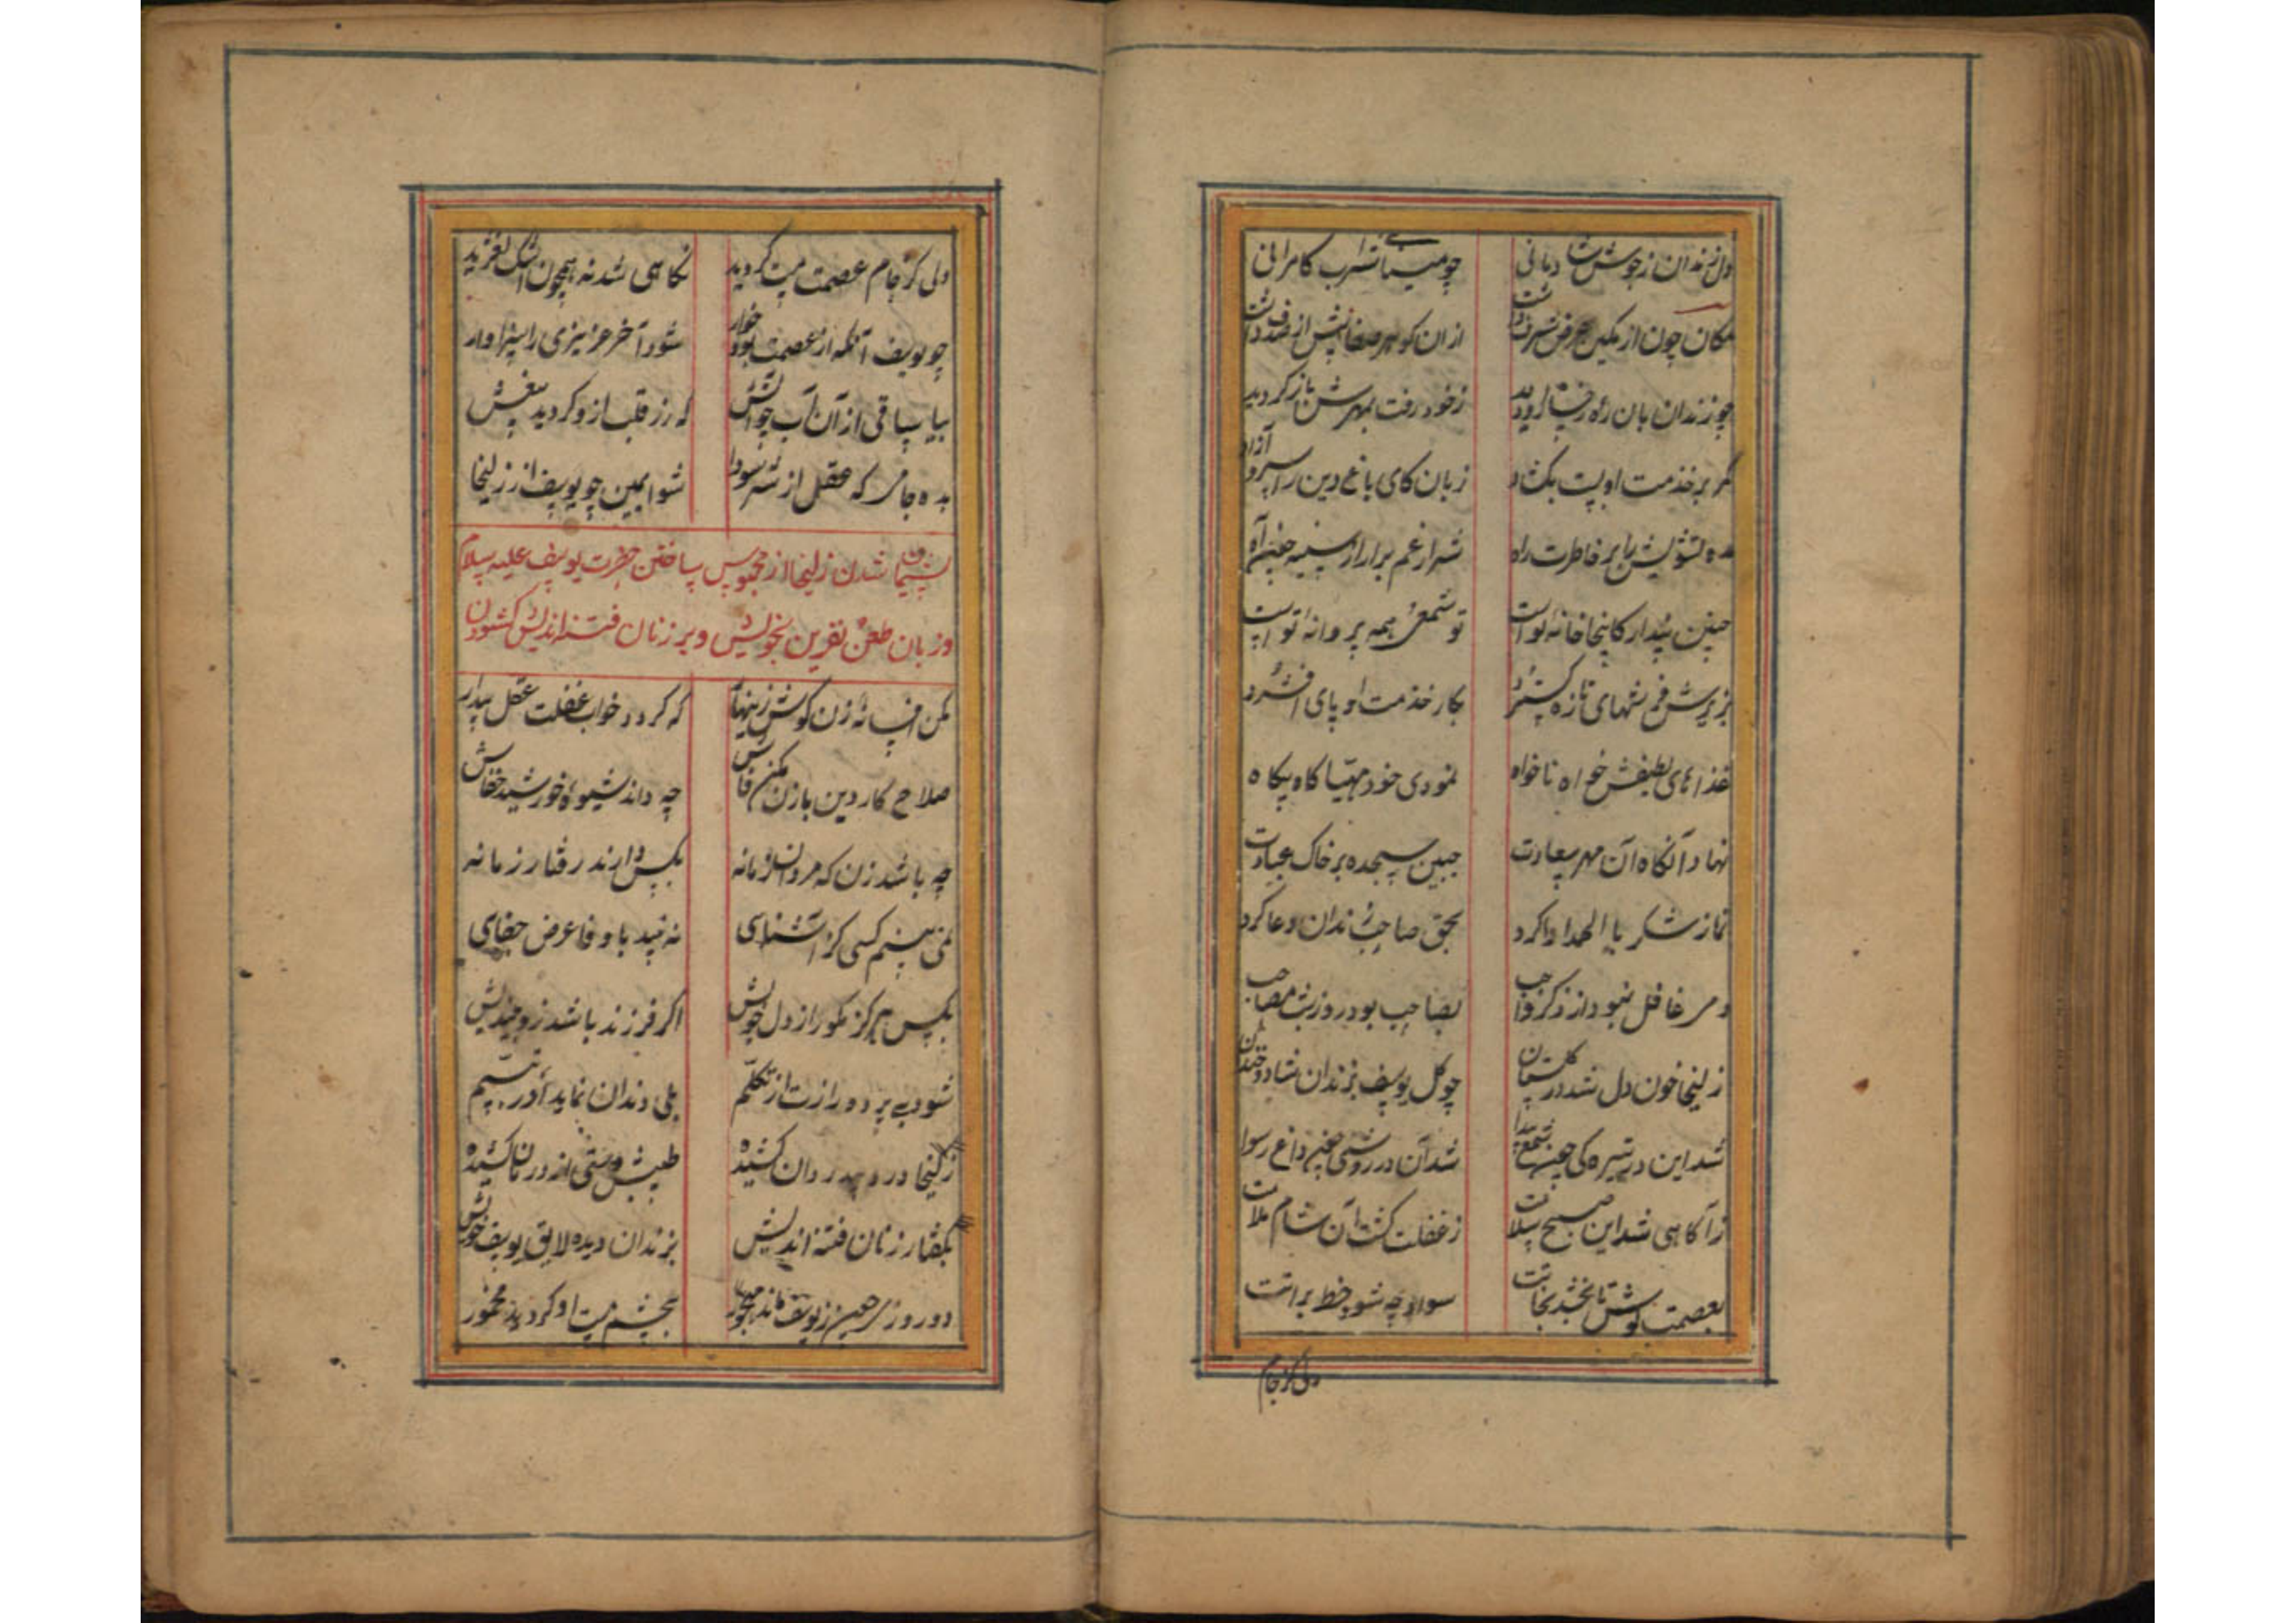 دل زندان ز جوش شادمانی چو مینا شراب کامرانی
مکان چون از مکین عرض شرف داشت از ان کوهر صفا پیش از صدف داشت
چو زندان بان رخسار او دید ز خود رفت بمهرش باز کردید
کمر بر خذمت او بست بکشاد زبان کای باغ دین را سرو آزاد
مده تشویش را بر خاطرت راه شرار غم برار از سینه چون آه
چنین پندار کاینجا خانه تو است تو شمعی همه پروانه تو است
بزیرش فرشهای تازه کسترد بکار خذمت او پای افشرد
غذاهای لطیفش خواه ناخواه نمودی خود مهیا کاه بیکاه
نهاد آنکاه آن مهر سعادت جبین سجده بر خاک عبادت
نماز شکر با الهدا ادا کرد بحق صاحب زندان دعا کرد
دمی غافل نبود از ذکر واجب بصاحب بود روز شب مصاحب
زلیخا خون دل شد در کلستان چو کل یوسف بزندان شاد و خندان
شد این در تیره کی چون شمع پیدا شد آن در روشنی چون داغ رسوا
ز آکاهی شد این صبح سلامت ز غفلت کشت آن شام ملامت
بعصمت کوش تا بخشد نجاتت سواد چه شود خط براتت
ولی کز جام
ولی کز جام عصمت مست کردید نکاهی شد نه همچون اشک لغزید
چو یوسف آنکه از عصمت بود خوار شود آخر عزیزی را سزاوار
بیا ساقی از آن آب چو آتش که زر قلب از و کردید بیغش
بده جامی که عقل از شر سودا شو ایمین چو یوسف از زلیخا
پشیمان شدن زلیخا از محبوس ساختن حضرت یوسف علیه سلام
و زبان طعن نفرین بخویش و بر زنان فتنه اندیش کشودن
مکن افسانه زن کوش زینهار که کردد خواب غفلت عقل بیدار
صلاح کار دین با زن مکن فاش چه داند شیوه خورشید خفاش
چه باشد زن که مردان زمانه بکس دارند رفتار زمانه
نمی بینم کسی کز آشنایی نه بیند با وفا عرض جفایی
بکس هرکز مکو راز دل خویش اکر فرزند باشد زو بیندیش
شود بی پرده رازت از تکلم بلی دندان نماید از در تبسم
زلیخا درد بیدردان کشیده طپش وستی از درمان کشیده
بکفتار زنان فتنه اندیش بزندان دیده لایق یوسف خویش
دو روزی چون ز یوسف ماند مهجور بچشم مست او کردید مخمور